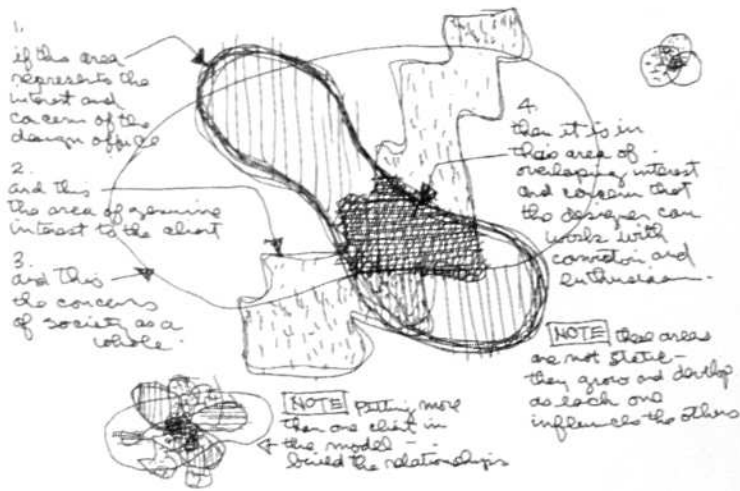 1.
if this area
represents the
interest and
concern of the
design office
2.
and this
the area of genuine
interest to the client
3.
and this
the concerns
of society as a
whole -
4.
then it is in
this area of
overlaping interest
and concern that
the designer can
work with
conviction and
enthusiasm -
NOTE these areas
are not static -
they grow and develop
as each one
influences the others
NOTE putting more
than one client in
the model - -
builds the relationships